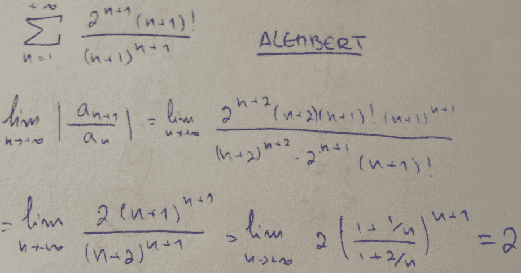 +∞
∑ 2^{n+1} (n+1)! / (n+1)^{n+1}
n=1
ALEMBERT
lim_{n→+∞} | a_{n+1} / a_n | = lim_{n→+∞} 2^{n+2} (n+2)(n+1)! (n+1)^{n+1} / (n+2)^{n+2} · 2^{n+1} (n+1)!
= lim_{n→+∞} 2 (n+1)^{n+1} / (n+2)^{n+1} = lim_{n→+∞} 2 ( 1+1/n / 1+2/n )^{n+1} = 2